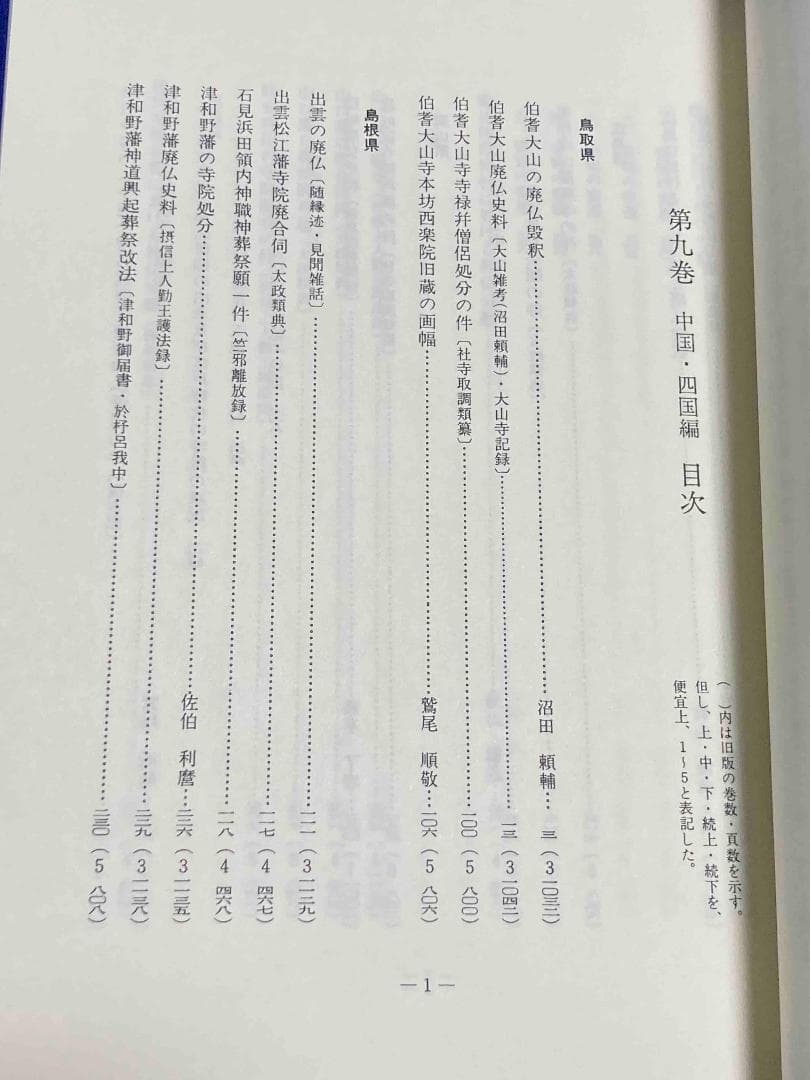 第九巻　中国・四国編　目次
（　）内は旧版の巻数・頁数を示す。
但し、上・中・下・続上・続下を、
便宜上、1〜5と表記した。
鳥取県
伯耆大山の廃仏毀釈……沼田　頼輔…三（3 一〇三二）
伯耆大山廃仏史料〔大山雑考（沼田頼輔）・大山寺記録〕……一三（3 一〇四二）
伯耆大山寺寺禄幷僧侶処分の件〔社寺取調類纂〕……一〇〇（5 八〇〇）
伯耆大山寺本坊西楽院旧蔵の画幅……鷲尾　順敬…一〇六（5 八〇六）
島根県
出雲の廃仏〔随縁迹・見聞雑話〕……一一一（3 一一二九）
出雲松江藩寺院廃合伺〔太政類典〕……一一七（4 四六七）
石見浜田領内神職神葬祭願一件〔竺邪離放録〕……一一八（4 四六八）
津和野藩の寺院処分……佐伯　利麿…二二六（3 一一三五）
津和野藩廃仏史料〔摂信上人勤王護法録〕……二二九（3 一一三八）
津和野藩神道興起葬祭改法〔津和野御届書・於杼呂我中〕……二三〇（5 八〇八）
— 1 —